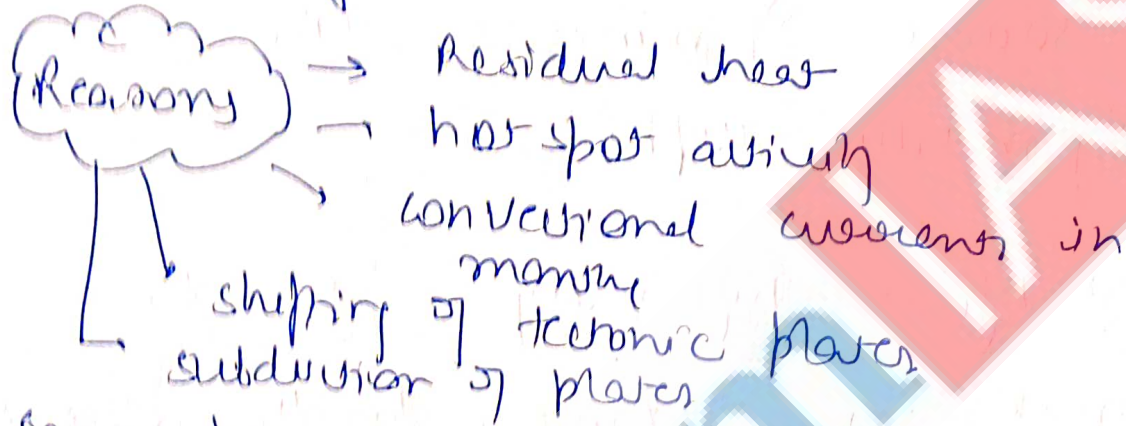 Reasons
→ Residual heat
→ hot spot activity
→ convectional currents in
mantle
shifting of tectonic plates
subduction of plates
IA